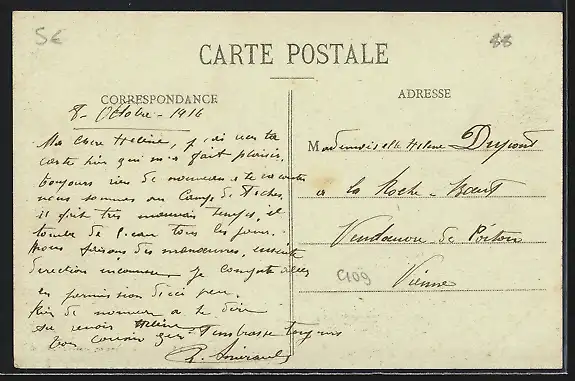 5€
88
CARTE POSTALE
CORRESPONDANCE
ADRESSE
8 - Octobre - 1916
Ma chere Helène, j'ai reçu ta
carte hier qui m'a fait plaisir,
toujours rien de nouveau a te raconter
nous sommes au Camp de
il fait très mauvais temps, il
tombe de l'eau tous les jours.
nous faisons des manœuvres, ensuite
direction inconnue je compte aller
en permission d'ici peu.
Rien de nouveau a te dire
au revoir Helène
ton cousin qui t'embrasse toujours
Mademoiselle Helene Dupont
a la Roche - Haut
Vendœuvre de Poitou
Vienne
C109